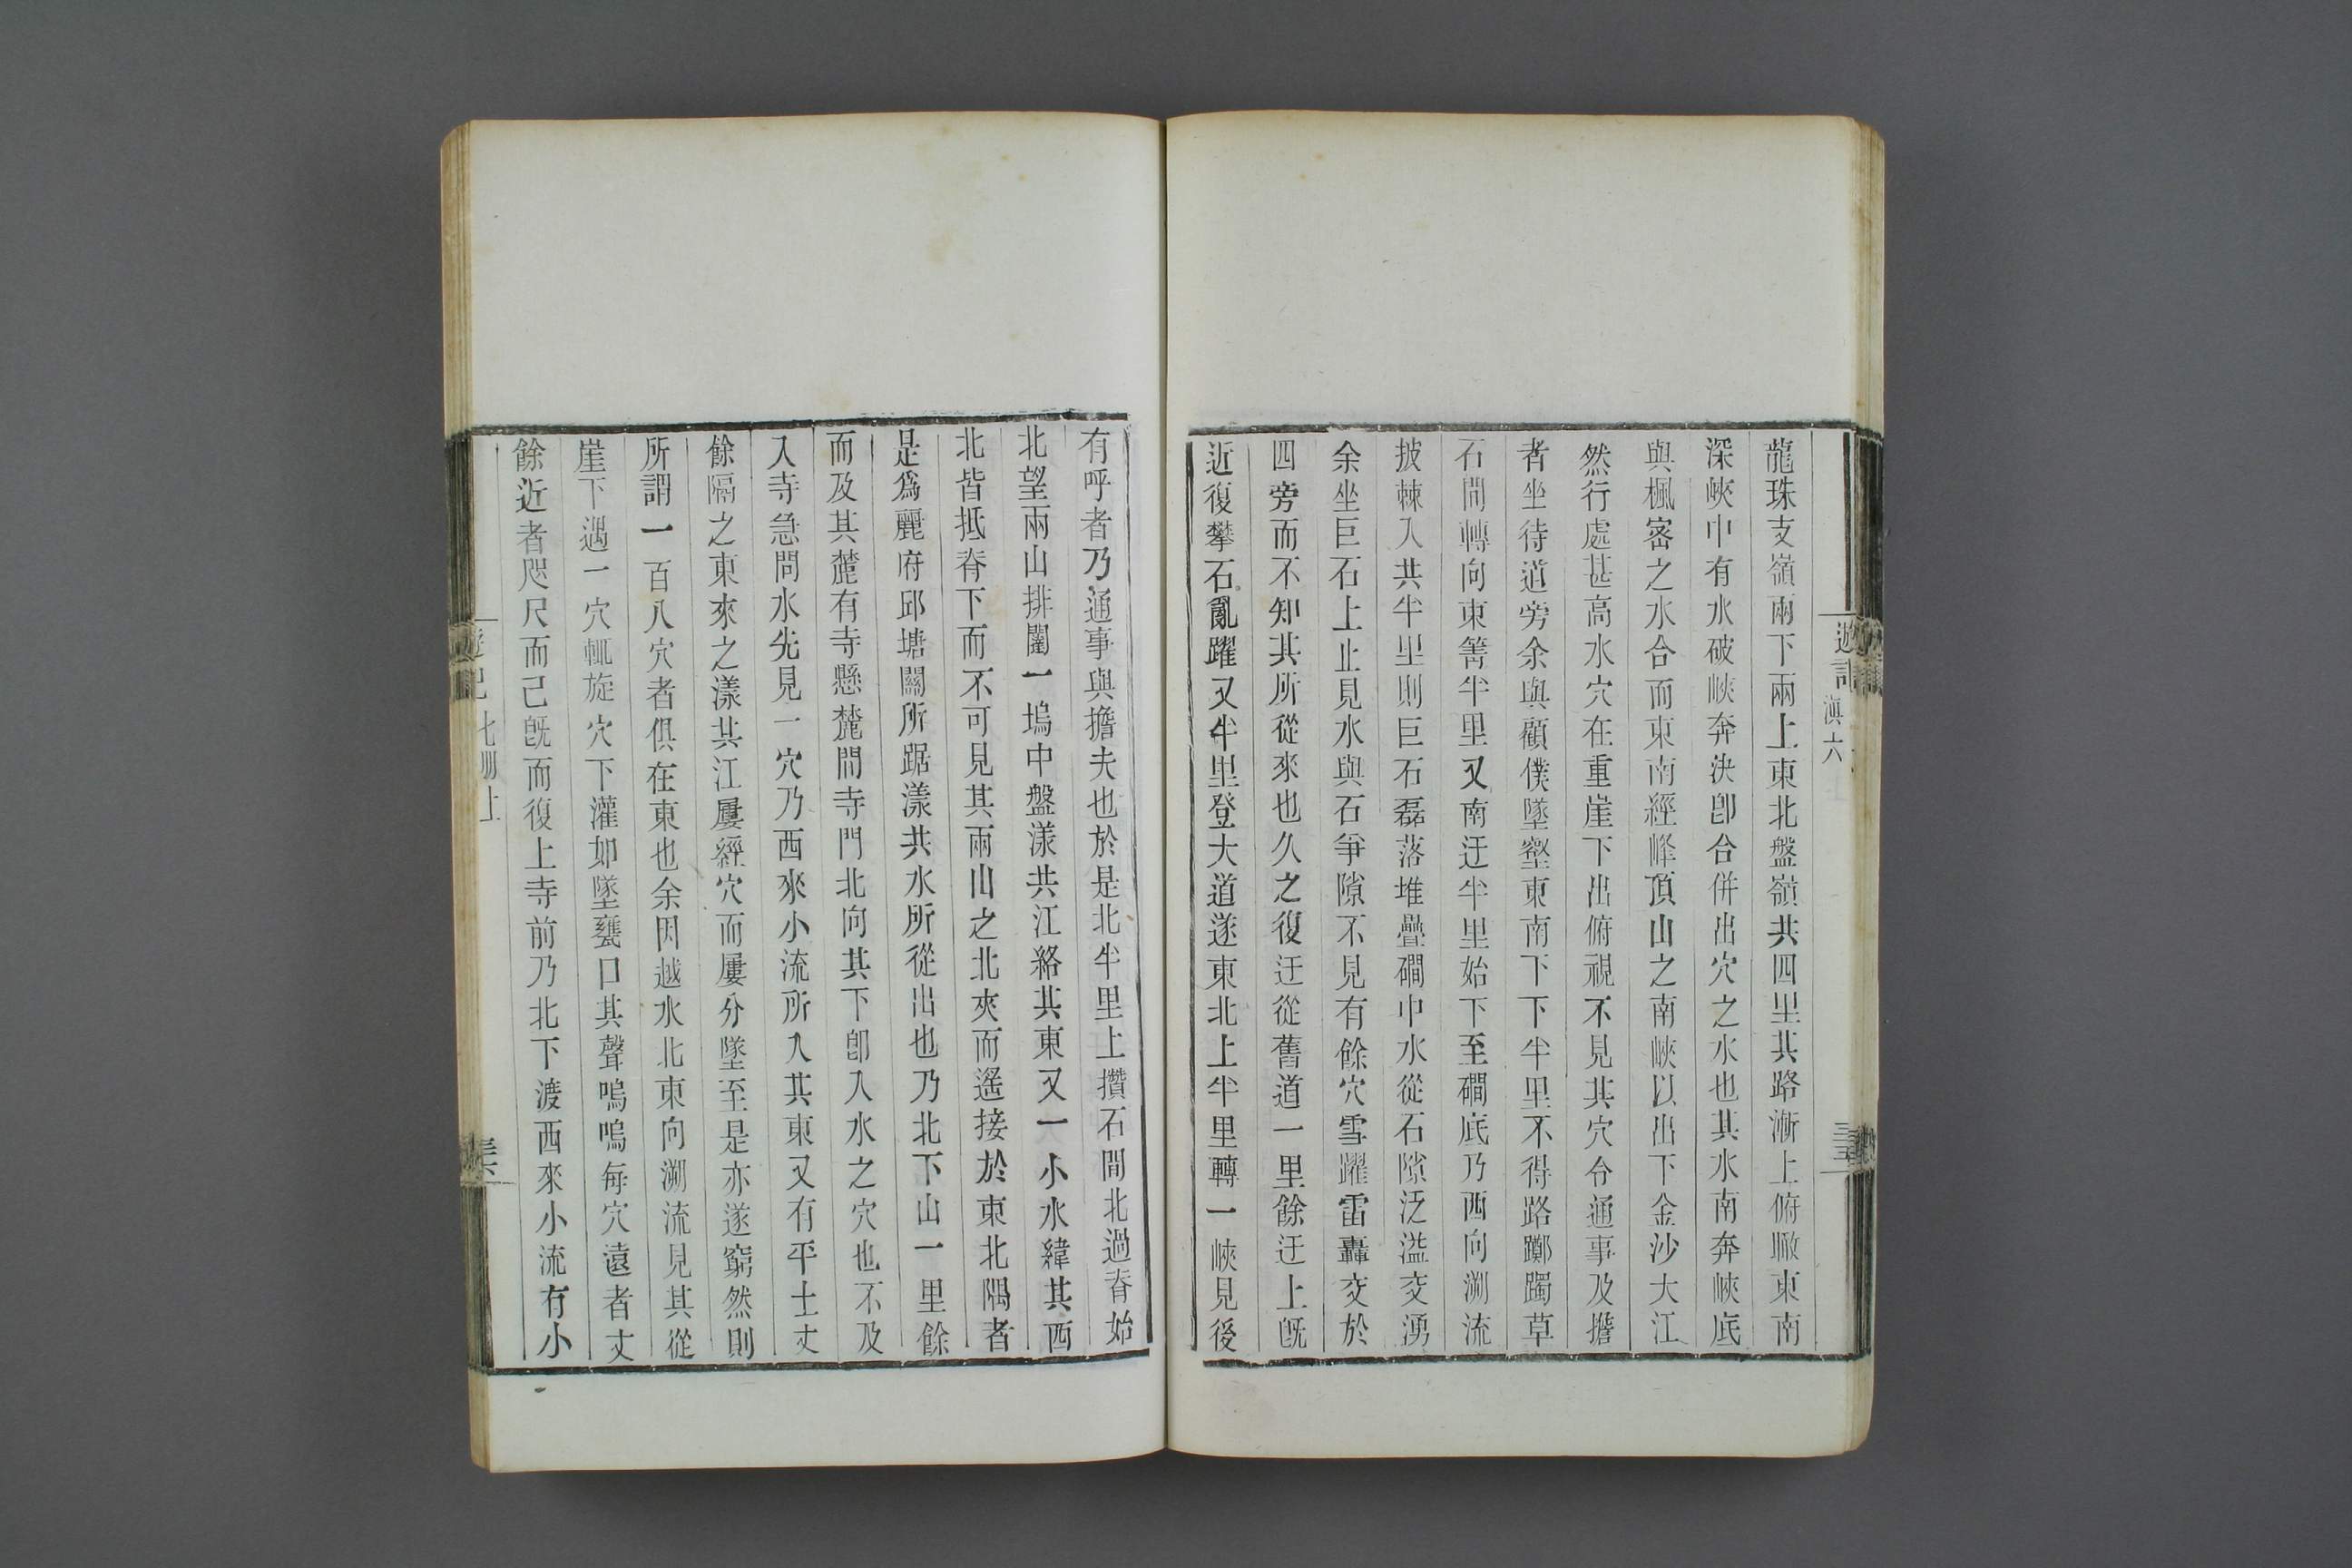 遊記
滇六
龍珠支嶺兩下兩上東北盤嶺共四里其路漸上俯瞰東南
深峽中有水破峽奔決卽合併出穴之水也其水南奔峽底
與楓密之水合而東南經峰頂山之南峽以出下金沙大江
然行處甚高水穴在重崖下出俯視不見其穴令通事及擔
者坐待道旁余與顧僕墜壑東南下下半里不得路躑躅草
石間轉向東箐半里又南迂半里始下至磵底乃西向溯流
披棘入共半里則巨石磊落堆疊磵中水從石隙泛溢交湧
余坐巨石上止見水與石爭隙不見有餘穴雪躍雷轟交於
四旁而不知其所從來也久之復迂從舊道一里餘迂上旣
近復攀石亂躍又半里登大道遂東北上半里轉一峽見後
有呼者乃通事與擔夫也於是北半里上攢石間北過脊始
北望兩山排闥一塢中盤漾共江絡其東又一小水緯其西
北皆抵脊下而不可見其兩山之北夾而遙接於東北隅者
是爲麗府邱塘關所踞漾共水所從出也乃北下山一里餘
而及其麓有寺懸麓間寺門北向其下卽入水之穴也不及
入寺急問水先見一穴乃西來小流所入其東又有平土丈
餘隔之東來之漾共江屢經穴而屢分墜至是亦遂窮然則
所謂一百八穴者俱在東也余因越水北東向溯流見其從
崖下遇一穴輒旋穴下灌如墜甕口其聲嗚嗚每穴遠者丈
餘近者咫尺而已旣而復上寺前乃北下渡西來小流有小